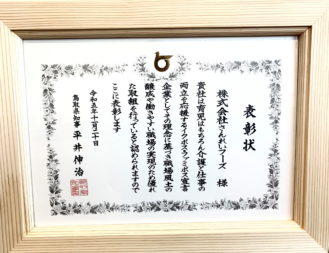 表彰状
株式会社さんれいフーズ 様
貴社は育児はもちろん介護と仕事の
両立を応援するイクボスファミボス宣言
企業としてその理念に基づき職場風土の
醸成や働きやすい職場の実現のため優れ
た取組を行っていると認められますので
ここに表彰します
令和五年十一月二十日
鳥取県知事 平井伸治